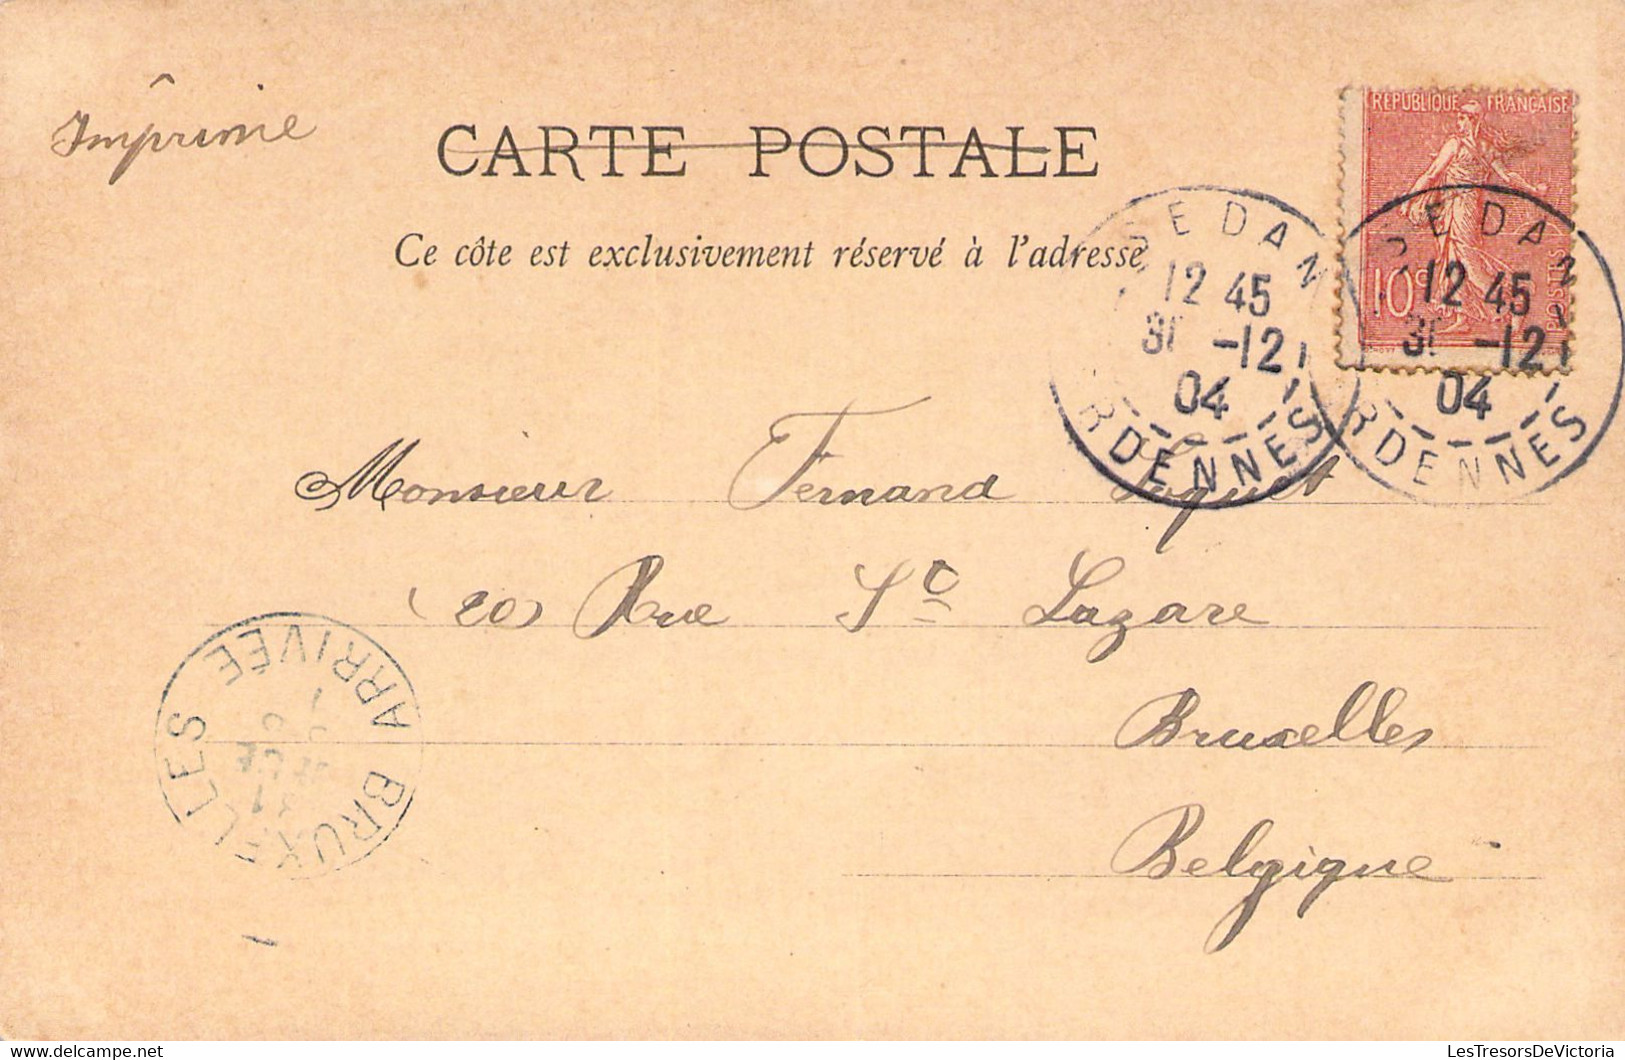 Imprimé
CARTE POSTALE
Ce côte est exclusivement réservé à l'adresse
REPUBLIQUE FRANÇAISE
10c
POSTES
SEDAN
12 45
31 -12
04
ARDENNES
SEDAN
12 45
31 -12
04
ARDENNES
Monsieur Fernand
20 Rue St Lazare
Bruxelles
Belgique
BRUXELLES ARRIVÉE
31
LesTresorsDeVictoria